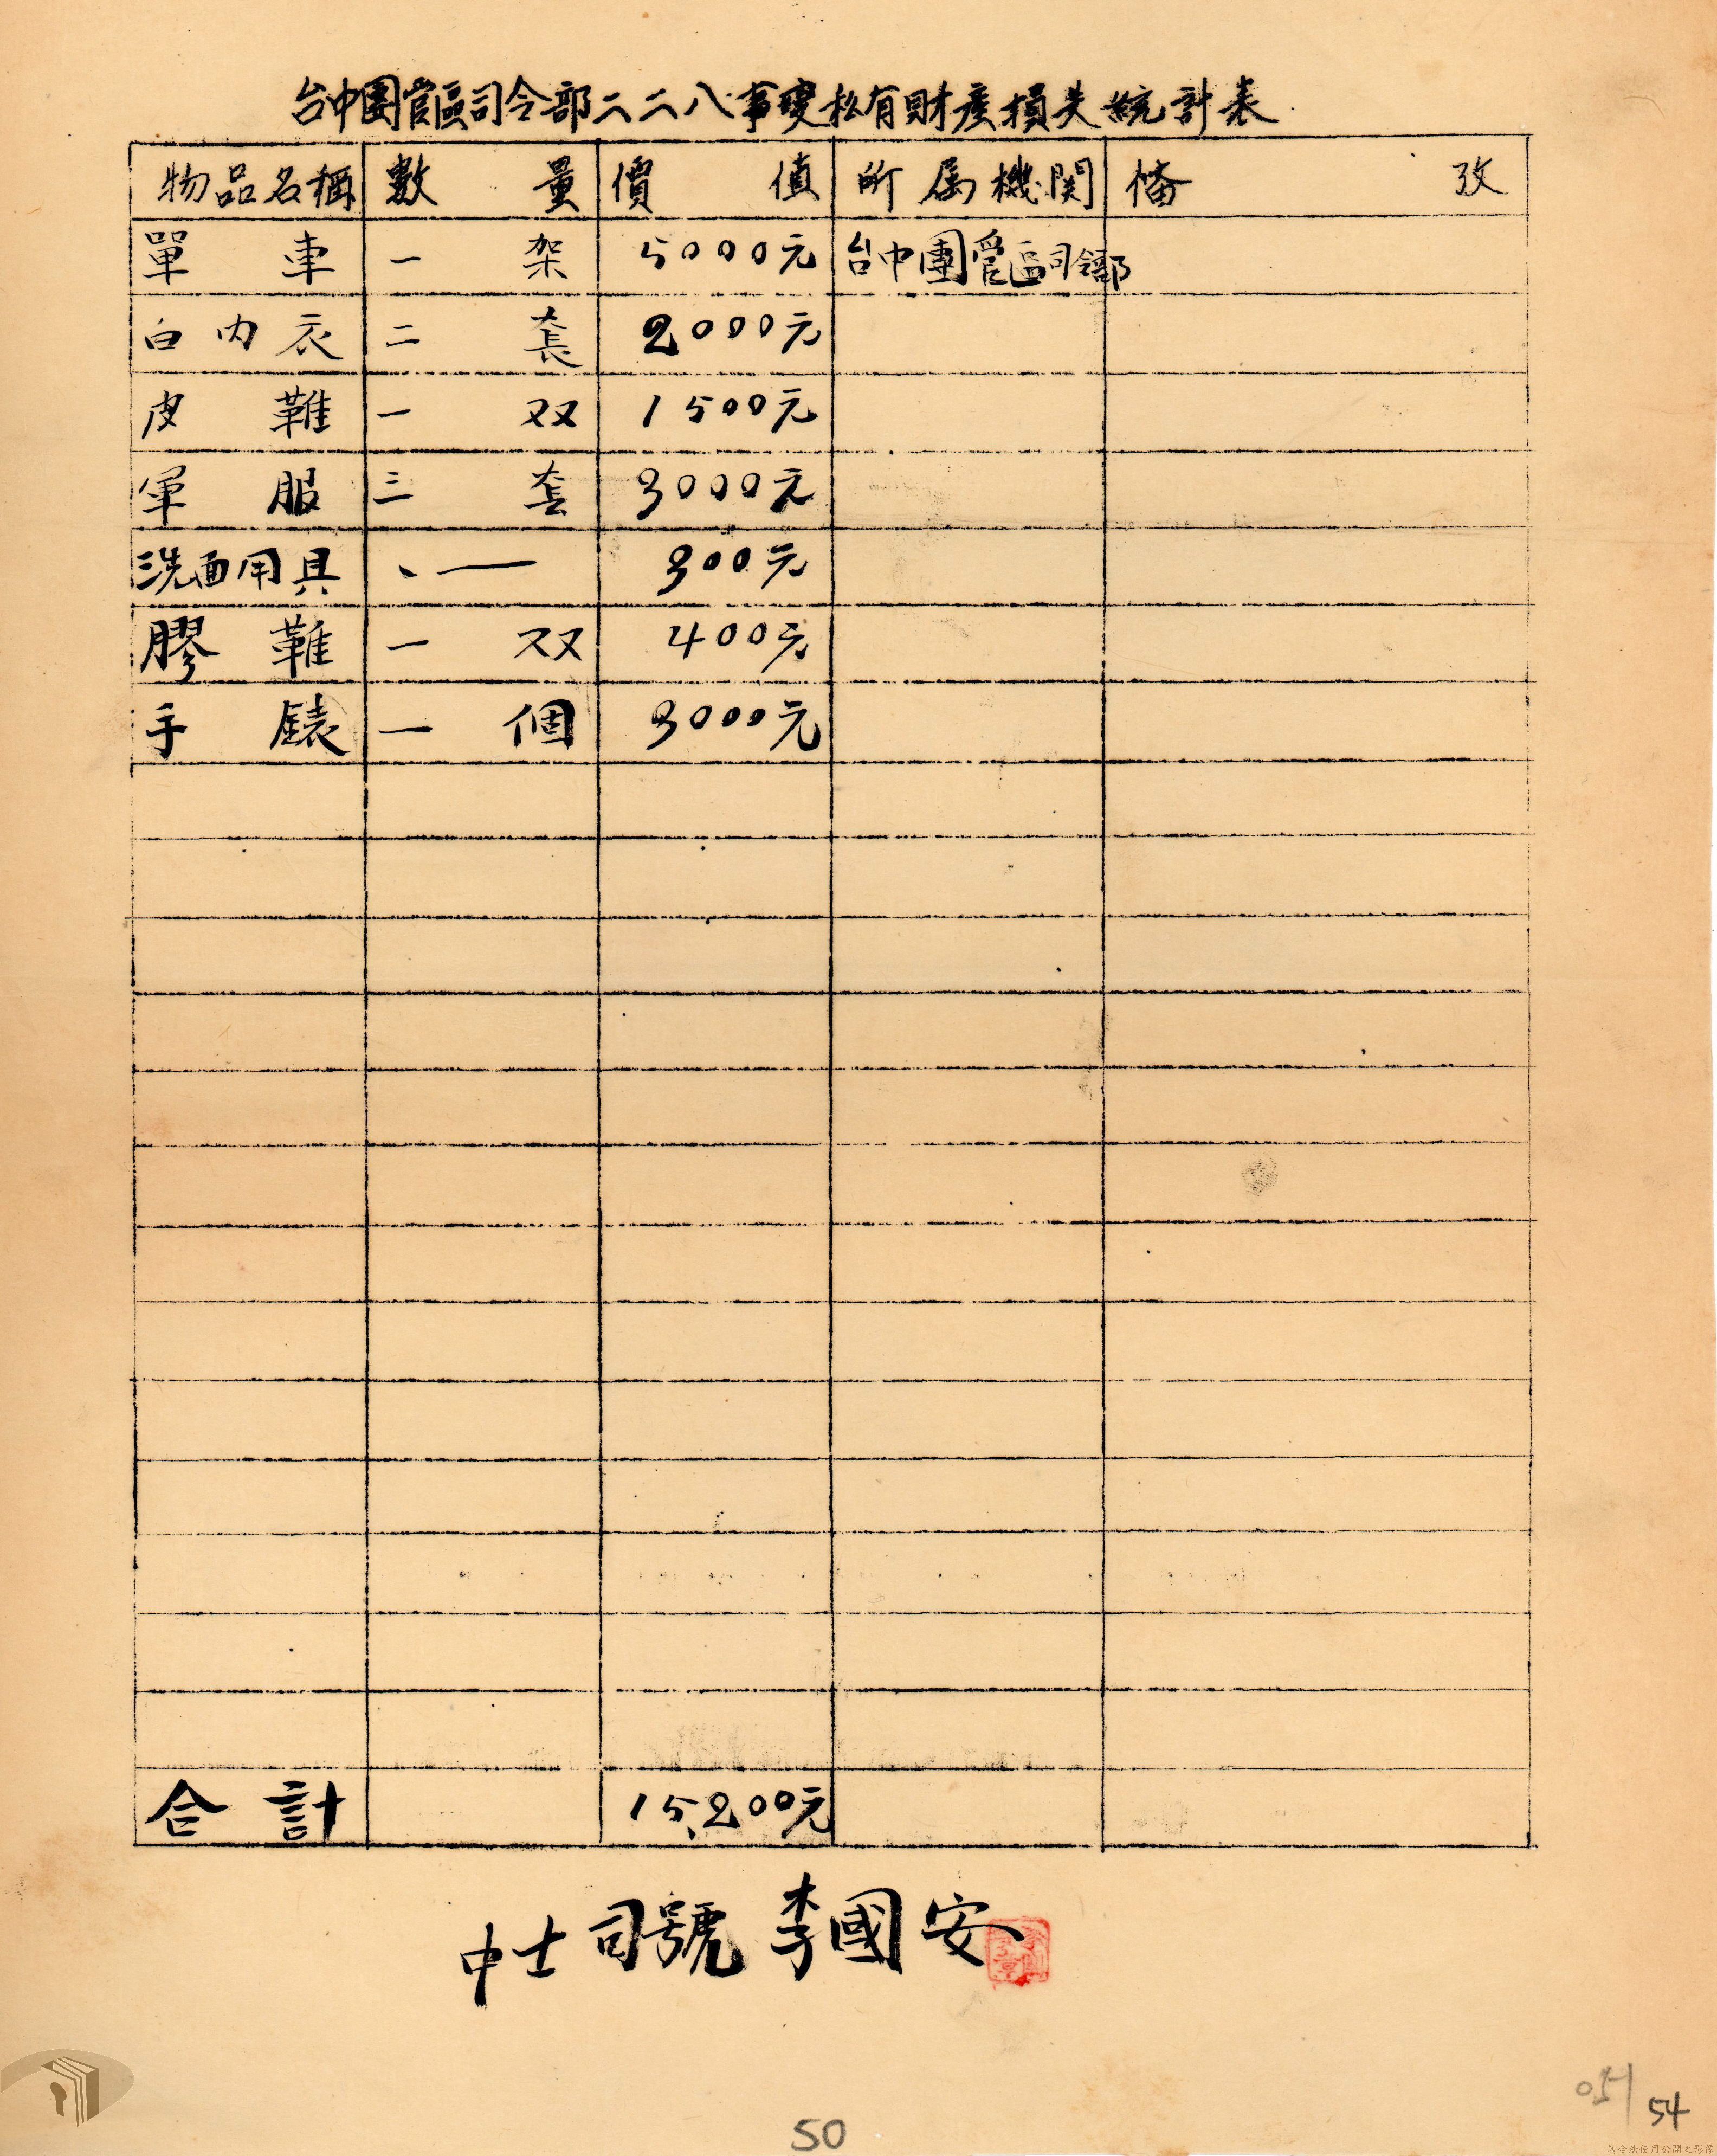 台中團管區司令部二二八事變私有財產損失統計表
物品名稱 數量 價值 所屬機関 備攷
單車 一架 5000元 台中團管區司令部
白內衣 二套 2000元
皮鞋 一双 1500元
軍服 三套 3000元
洗面用具 、一 300元
膠鞋 一双 400元
手錶 一個 3000元
合計 15,200元
中士司號 李國安
051
54
50
請合法使用公開之影像